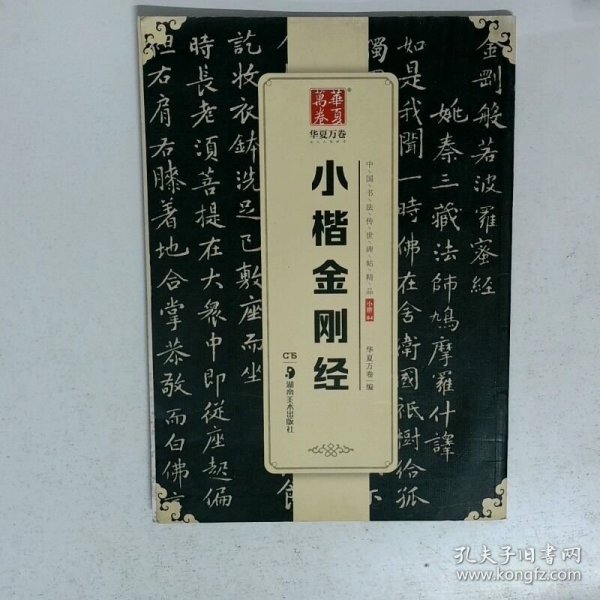 金剛般若波羅蜜經
姚秦三藏法師鳩摩羅什譯
如是我聞一時佛在舍衛國祇樹給孤
訖收衣鉢洗足已敷座而坐
時長老須菩提在大衆中即從座起偏
袒右肩右膝著地合掌恭敬而白佛言
華夏
萬卷
华夏万卷
中国书法传世碑帖精品
小楷 04
小楷金刚经
华夏万卷 编
湖南美术出版社
孔夫子旧书网
www.kongfz.com